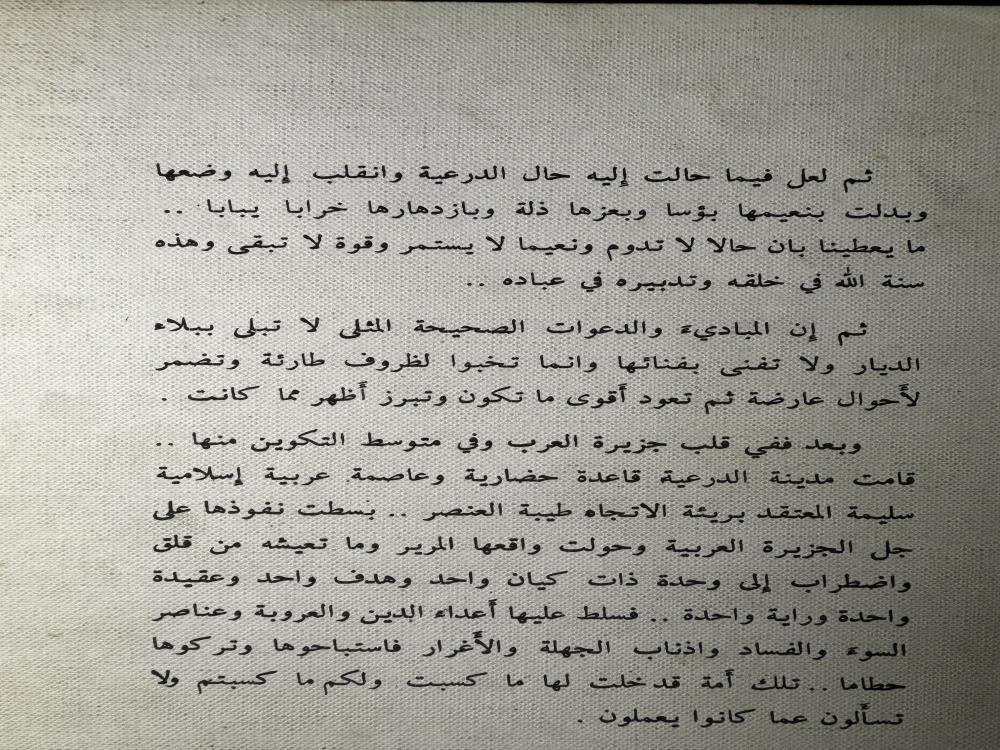 ثم لعل فيما حالت إليه حال الدرعية وانقلب إليه وضعها
وبدلت بنعيمها بؤسا وبعزها ذلة وبازدهارها خرابا يبابا ..
ما يعطينا بان حالا لا تدوم ونعيما لا يستمر وقوة لا تبقى وهذه
سنة الله في خلقه وتدبيره في عباده ..
ثم إن المباديء والدعوات الصحيحة المثلى لا تبلى ببلاء
الديار ولا تفنى بفنائها وانما تخبوا لظروف طارئة وتضمر
لأحوال عارضة ثم تعود أقوى ما تكون وتبرز أظهر مما كانت .
وبعد ففي قلب جزيرة العرب وفي متوسط التكوين منها ..
قامت مدينة الدرعية قاعدة حضارية وعاصمة عربية إسلامية
سليمة المعتقد بريئة الاتجاه طيبة العنصر .. بسطت نفوذها على
جل الجزيرة العربية وحولت واقعها المرير وما تعيشه من قلق
واضطراب إلى وحدة ذات كيان واحد وهدف واحد وعقيدة
واحدة وراية واحدة .. فسلط عليها أعداء الدين والعروبة وعناصر
السوء والفساد واذناب الجهلة والأغرار فاستباحوها وتركوها
حطاما .. تلك أمة قد خلت لها ما كسبت ولكم ما كسبتم ولا
تسألون عما كانوا يعملون .